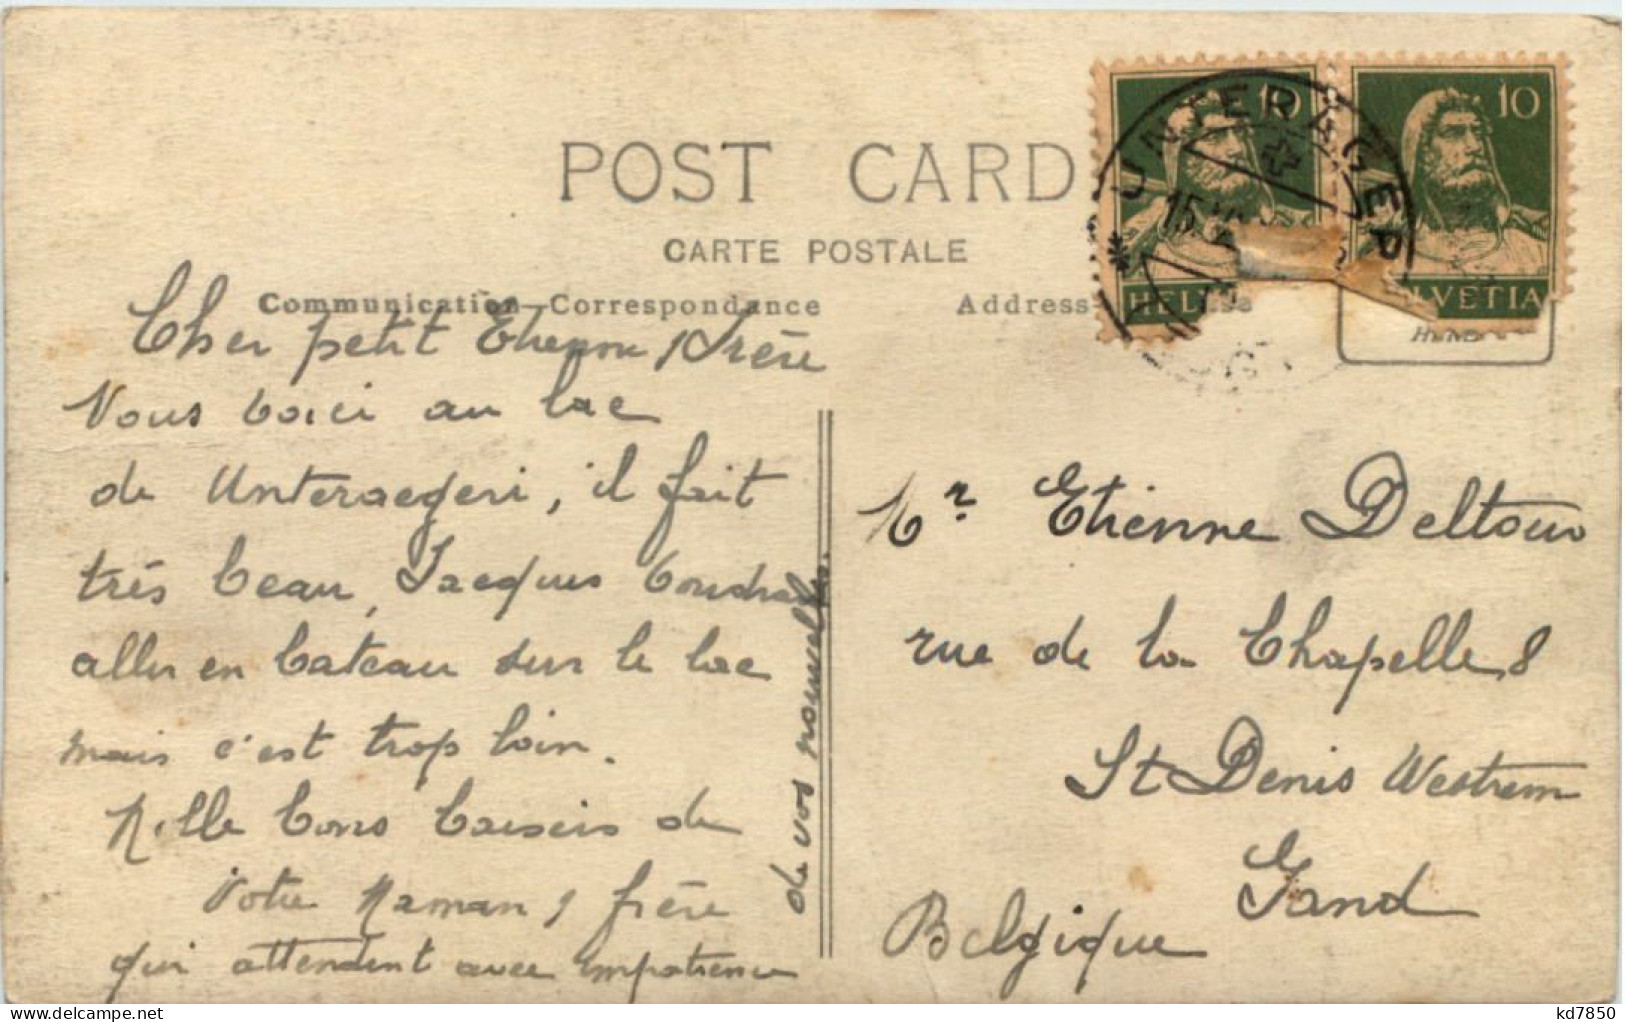 POST CARD
CARTE POSTALE
Communication-Correspondance
Address
Cher petit Etienne, frère
Nous voici au lac
de Unteraegeri, il fait
très beau, Jacques voudrait
aller en bateau sur le lac
mais c'est trop loin.
Mille bons baisers de
Votre Maman, frère
qui attendent avec impatience
de vos nouvelles.
10
10
HELVETIA
UNTERÄGERI
15
Mr Etienne Deltour
rue de la Chapelle, 8
St Denis Westrem
Gand
Belgique
kd7850